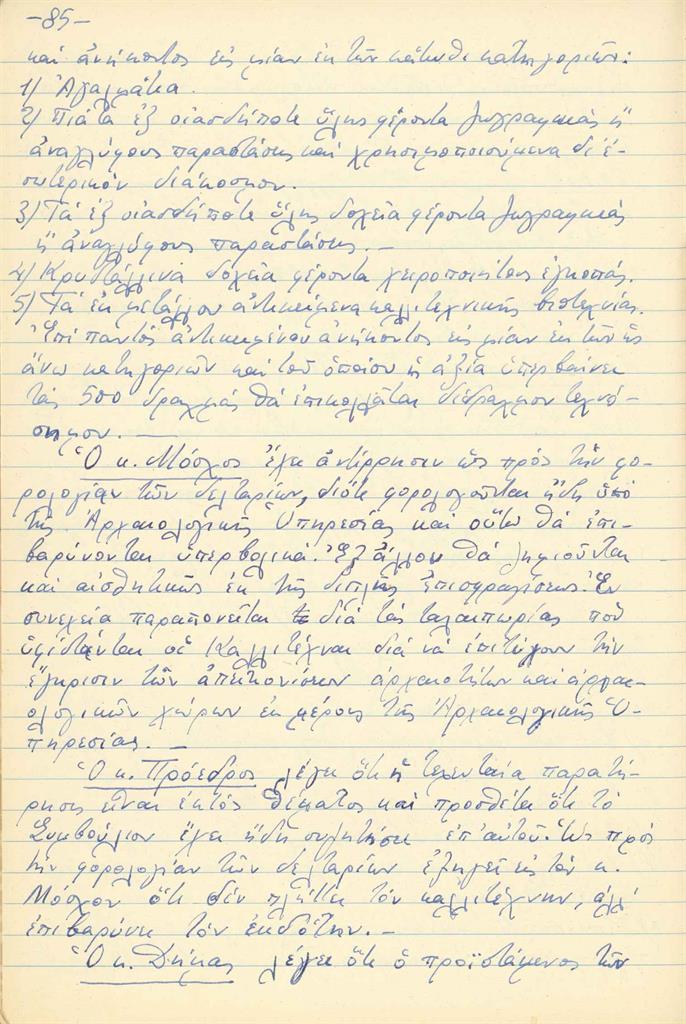 -85-
καί ἀνήκοντος εἰς μίαν ἐκ τῶν κάτωθι κατηγοριῶν:
1) Ἀγαλμάτια.
2) Πιάτα ἐξ οἱασδήποτε ὕλης φέροντα ζωγραφικάς ἤ
ἀναγλύφους παραστάσεις καί χρησιμοποιούμενα δι' ἐ-
σωτερικόν διάκοσμον.
3) Τά ἐξ οἱασδήποτε ὕλης δοχεῖα φέροντα ζωγραφικάς
ἤ ἀναγλύφους παραστάσεις.—
4) Κρυστάλλινα δοχεῖα φέροντα χειροποιήτους ἐγκοπάς.
5) Τά ἐκ μετάλλου ἀντικείμενα καλλιτεχνικῆς βιοτεχνίας.
Ἐπί παντός ἀντικειμένου ἀνήκοντος εἰς μίαν ἐκ τῶν ὡς
ἄνω κατηγοριῶν καί τοῦ ὁποίου ἡ ἀξία ὑπερβαίνει
τάς 500 δραχμάς θά ἐπικολλᾶται δίδραχμον τεχνό-
σημον.—
Ὁ κ. Μόσχος ἔχει ἀντίρρησιν ὡς πρός τήν φο-
ρολογίαν τῶν δελταρίων, διότι φορολογοῦνται ἤδη ὑπό
τῆς Ἀρχαιολογικῆς Ὑπηρεσίας καί οὕτω θά ἐπι-
βαρύνονται ὑπερβολικά. Ἐξ ἄλλου θά ζημιοῦνται
καί αἰσθητικῶς ἐκ τῆς διπλῆς ἐπισφραγίσεως. Ἐν
συνεχεία παραπονεῖται διά τάς ταλαιπωρίας πού
ὑφίστανται οἱ Καλλιτέχναι διά νά ἐπιτύχουν τήν
ἔγκρισιν τῶν ἀπεικονίσεων ἀρχαιοτήτων καί ἀρχαι-
ολογικῶν χώρων ἐκ μέρους τῆς Ἀρχαιολογικῆς Ὑ-
πηρεσίας.—
Ὁ κ. Πρόεδρος λέγει ὅτι ἡ τελευταία παρατή-
ρησις εἶναι ἐκτός θέματος καί προσθέτει ὅτι τό
Συμβούλιον ἔχει ἤδη συζητήσει ἐπ' αὐτοῦ. Ὡς πρός
τήν φορολογίαν τῶν δελταρίων ἐξηγεῖ εἰς τόν κ.
Μόσχον ὅτι δέν πλήττει τόν καλλιτέχνην, ἀλλ'
ἐπιβαρύνει τόν ἐκδότην.—
Ὁ κ. Δήμας λέγει ὅτι ὁ προϊστάμενος τῶν